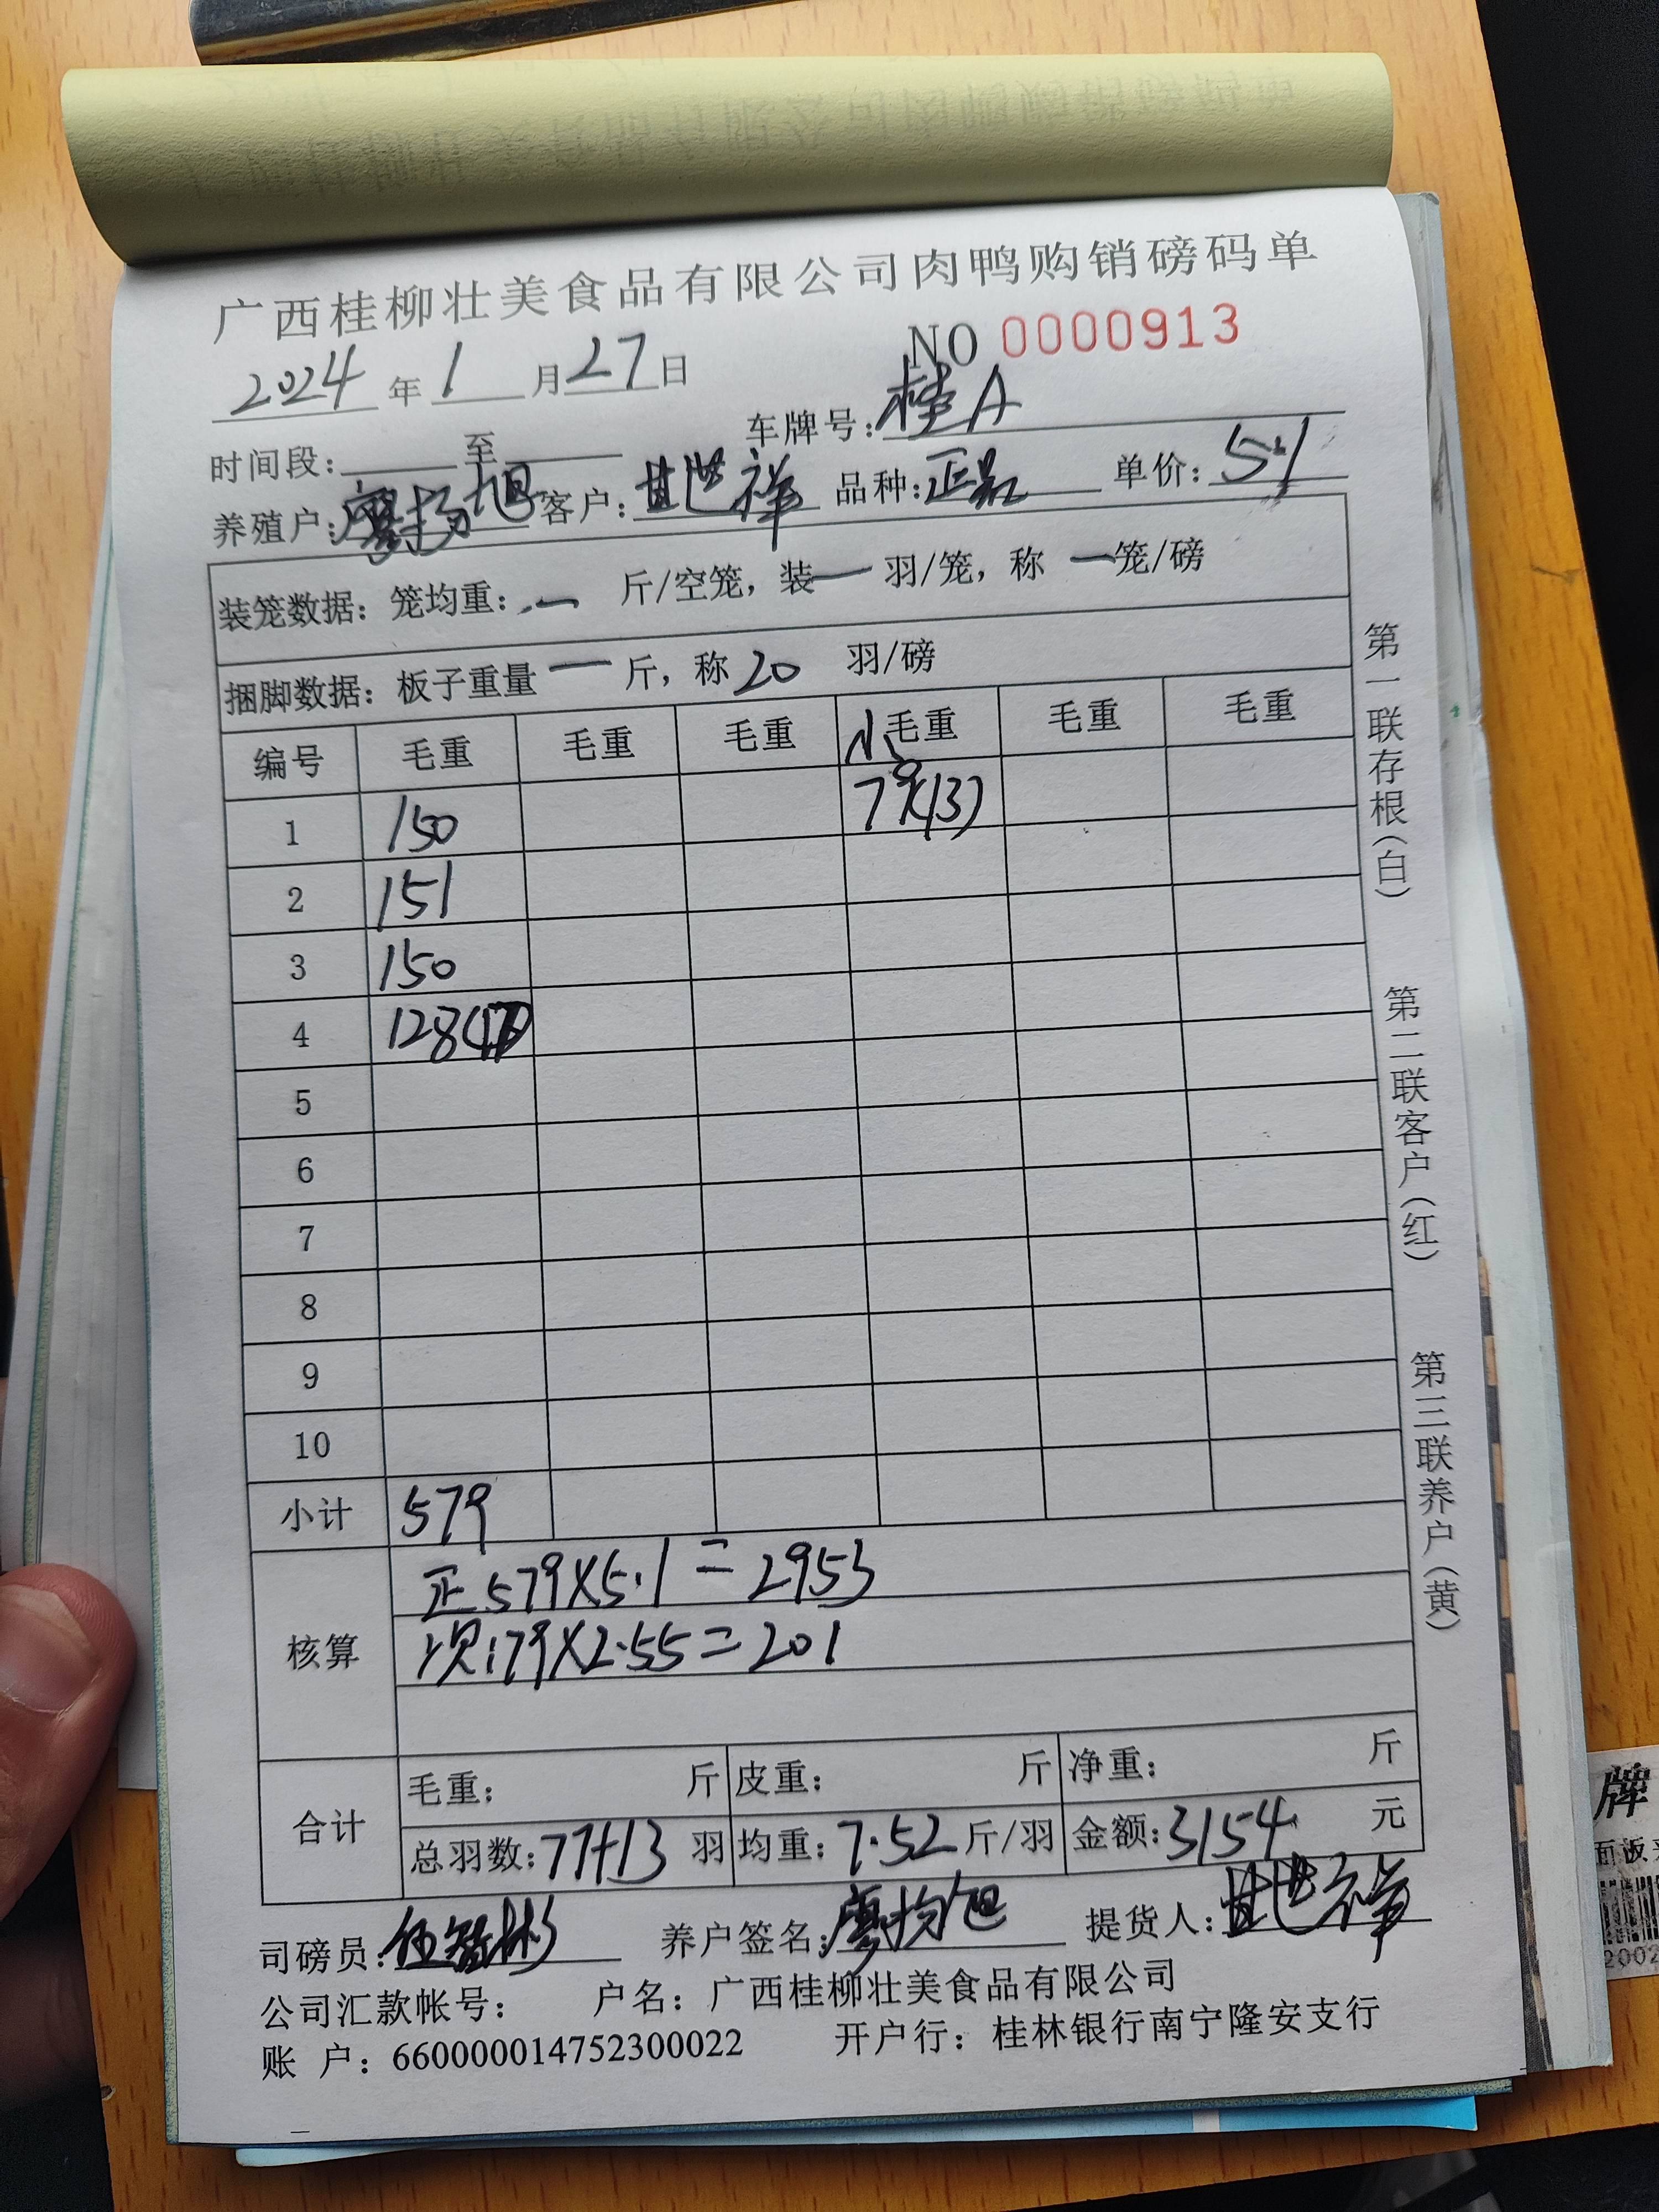 广西桂柳壮美食品有限公司肉鸭购销磅码单
2024年1月27日 NO 0000913
时间段: 至 车牌号: 桂A
养殖户: 廖扬旭 客户: 甘世祥 品种: 正品 单价: 5.1
装笼数据: 笼均重: 一 斤/空笼, 装一羽/笼, 称一笼/磅
捆脚数据: 板子重量一斤, 称20羽/磅
编号 毛重 毛重 毛重 小毛重 毛重 毛重
1 150 79(13)
2 151
3 150
4 128(17)
5
6
7
8
9
10
小计 579
核算 正579X5.1=2953
次:79X2.55=201
合计 毛重: 斤 皮重: 斤 净重: 斤
总羽数: 77+13 羽 均重: 7.52 斤/羽 金额: 3154 元
司磅员: 养户签名: 廖扬旭 提货人: 甘世祥
公司汇款帐号: 户名: 广西桂柳壮美食品有限公司
账 户: 660000014752300022 开户行: 桂林银行南宁隆安支行
第一联存根(白)
第二联客户(红)
第三联养户(黄)
牌